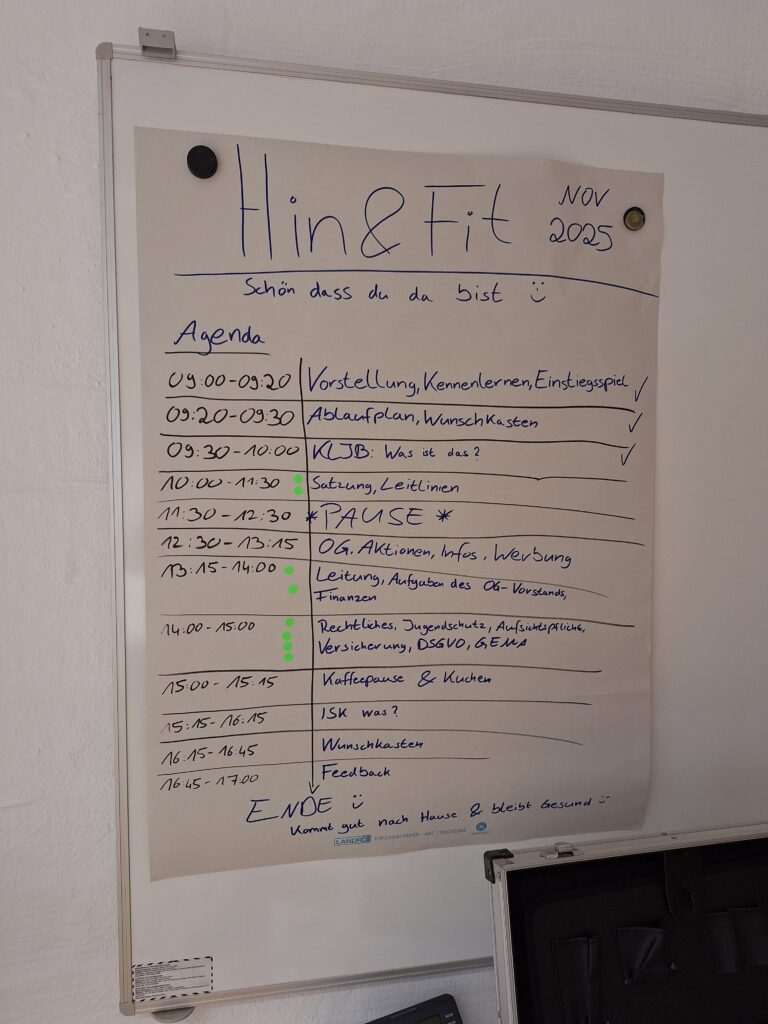 Hin & Fit
NOV
2025
Schön dass du da bist
Agenda
09:00-09:20 Vorstellung, Kennenlernen, Einstiegsspiel ✓
09:20-09:30 Ablaufplan, Wunschkasten ✓
09:30-10:00 KLJB: Was ist das? ✓
10:00-11:30 Satzung, Leitlinien
11:30-12:30 *PAUSE*
12:30-13:15 OG. Aktionen, Infos, Werbung
13:15-14:00 Leitung, Aufgaben des OG-Vorstands,
Finanzen
14:00-15:00 Rechtliches, Jugendschutz, Aufsichtspflicht,
Versicherung, DSGVO, GEMA
15:00-15:15 Kaffeepause & Kuchen
15:15-16:15 ISK was?
16:15-16:45 Wunschkasten
16:45-17:00 Feedback
ENDE
Kommt gut nach Hause & bleibt Gesund
LANDRÉ